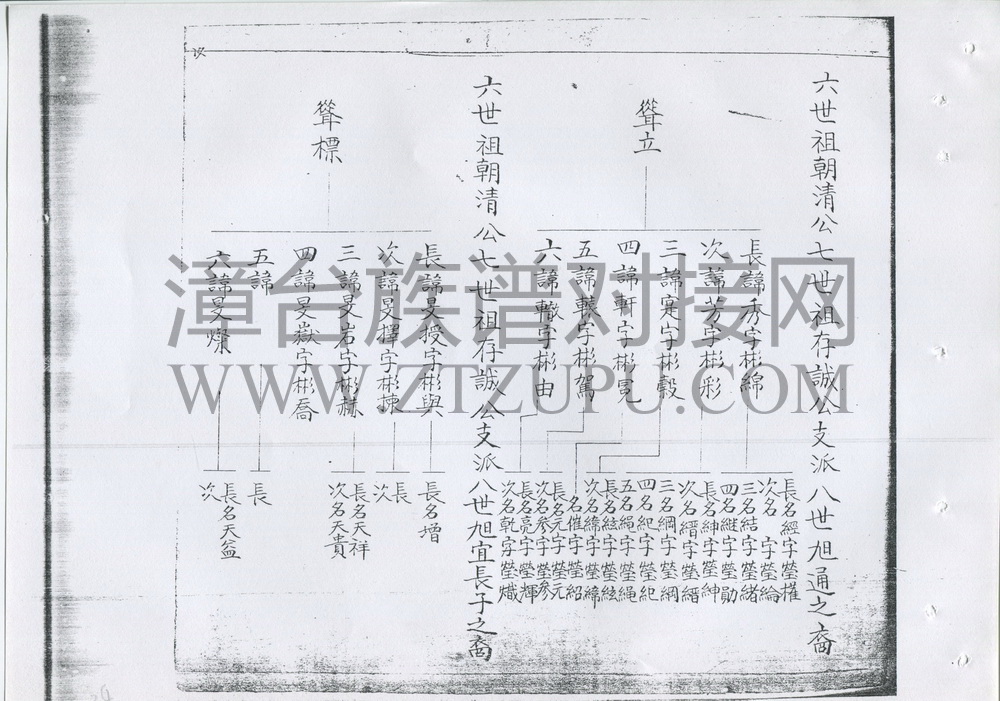 六世祖朝清公七世祖存誠公支派八世旭通之裔
聳立
長諱秀字彬綿
次諱芳字彬彩
三諱寔字彬縠
四諱軒字彬冕
五諱字彬駕
六諱轍字彬由
長名經字瑩權
次名 字瑩綸
三名結字瑩緒
四名維字瑩勛
長名紳字瑩紳
次名縉字瑩縉
三名綱字瑩綱
四名紀字瑩紀
五名繩字瑩繩
長名絃字瑩絃
次名緯字瑩緯
名催字瑩紹
長名元字瑩元
次名參字瑩參
長名亮字瑩輝
次名乾字瑩熾
六世祖朝清公七世祖存誠公支派八世旭宜長子之裔
聳標
長諱旻授字彬與
次諱旻擇字彬揀
三諱旻岩字彬赫
四諱旻嶽字彬喬
五諱
六諱旻燦
長名增
長
次
長名天祥
次名天貴
長
長名天益
次
漳台族谱对接网
WWW.ZTZUPU.COM